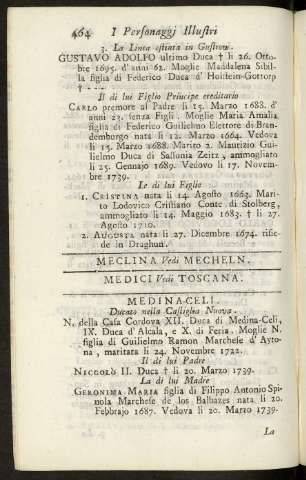 464 I Personaggj Illustri
3. La Linea estinta in Gustrow.
GUSTAVO ADOLFO ultimo Duca † li 26. Otto-
bre 1695. d'anni 62. Moglie Maddalena Sibil-
la figlia di Federico Duca d' Holstein-Gottorp
†
Il di lui Figlio Principe ereditario
CARLO premore al Padre li 15. Marzo 1688. d'
anni 23. senza Figli. Moglie Maria Amalia
figlia di Federico Guilielmo Elettore di Bran-
demburgo nata li 12. Marzo 1664. Vedova
li 15. Marzo 1688. Marito 2. Maurizio Gui-
lielmo Duca di Sassonia Zeitz, ammogliato
li 25. Gennajo 1689. Vedovo li 17. Novem-
bre 1739.
Le di lui Figlie
1. CRISTINA nata li 14. Agosto 1663. Mari-
to Lodovico Cristiano Conte di Stolberg,
ammogliato li 14. Maggio 1683. † li 27.
Agosto 1710.
2. AUGUSTA nata li 27. Dicembre 1674. risie-
de in Draghun.
MECLINA Vedi MECHELN.
MEDICI Vedi TOSCANA.
MEDINA-CELI.
Ducato nella Castiglia Nuova.
N. della Casa Cordova XII. Duca di Medina-Celi,
IX. Duca d' Alcala, e X. di Feria. Moglie N.
figlia di Guilielmo Ramon Marchese d' Ayto-
na, maritata li 24. Novembre 1722.
Il di lui Padre
NICCOLÒ II. Duca † li 20. Marzo 1739.
La di lui Madre
GERONIMA MARIA figlia di Filippo Antonio Spi-
nola Marchese de los Balbazes nata li 20.
Febbrajo 1687. Vedova li 20. Marzo 1739.
La